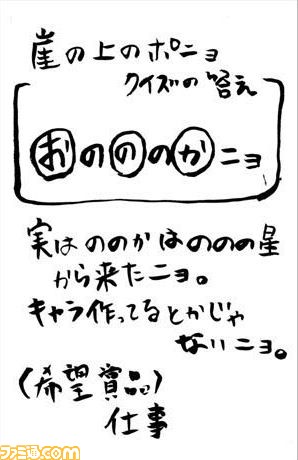 崖の上のポニョ
クイズの答え
おのののかニョ
実はののかはののの星
から来たニョ。
キャラ作ってるとかじゃ
ないニョ。
(希望賞品)
仕事
ファミ通.com